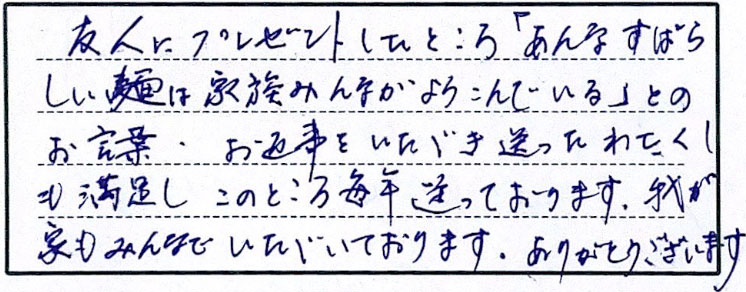 友人にプレゼントしたところ「あんなすばら
しい麺は家族みんながよろこんでいる」との
お言葉・お返事をいただき送ったわたくし
も満足しこのところ毎年送っております。我が
家もみんなでいただいております。ありがとうございます